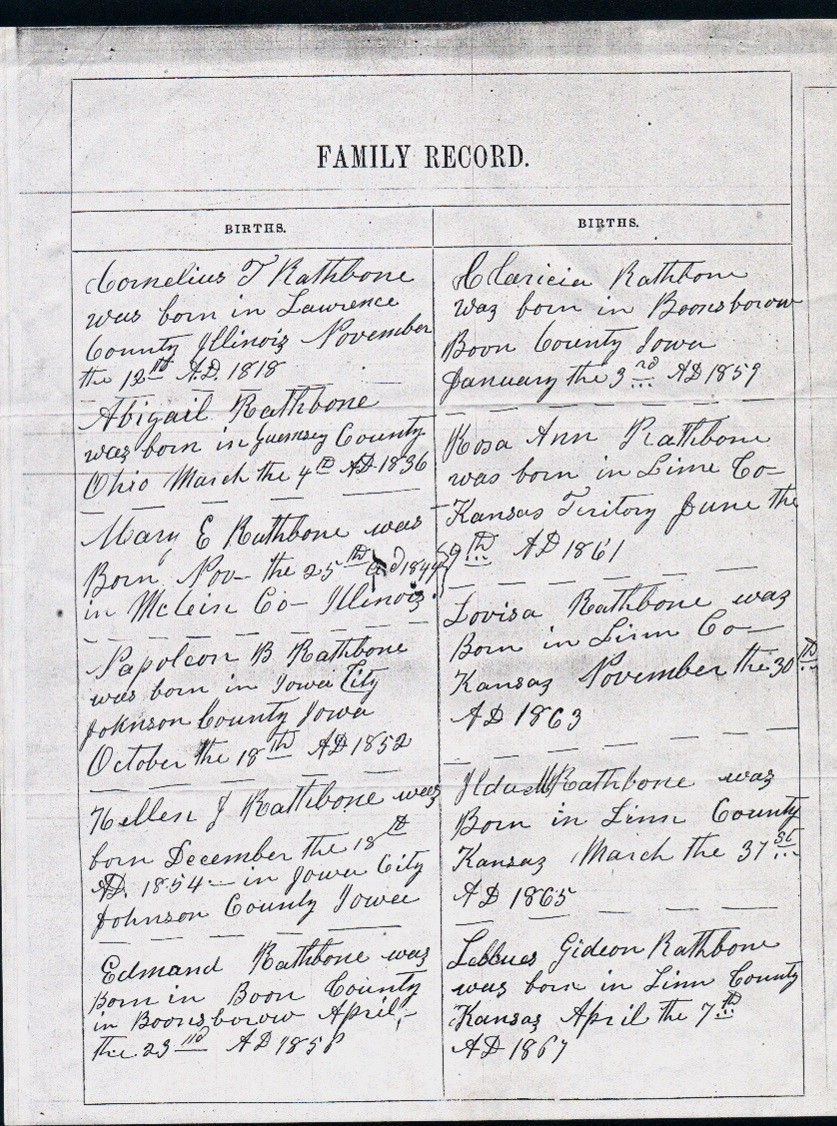 FAMILY RECORD.
BIRTHS.
Cornelius T Rathbone
was born in Lawrence
County Illinois November
the 12th A.D. 1818
Abigail Rathbone
was born in Guernsey County
Ohio March the 4th AD 1836
Mary E Rathbone was
Born Nov- the 25th AD 1849
in McLein Co- Illinois
Napoleon B Rathbone
was born in Iowa City
Johnson County Iowa
October the 18th AD 1852
Hellen J Rathbone was
born December the 18th
AD. 1854- in Iowa City
Johnson County Iowa
Edmand Rathbone was
Born in Boon County
in Boonsborow April
the 23rd AD 1858
BIRTHS.
Claricia Rathbone
was born in Boonsborow
Boon County Iowa
January the 3rd AD 1859
Rosa Ann Rathbone
was born in Linne Co-
Kansas Teritory June the
9th AD 1861
Lovisa Rathbone was
Born in Linn Co-
Kansas November the 30th
AD 1863
Ilda M Rathbone was
Born in Linn County
Kansas March the 31st
AD 1865
Gideon Rathbone
was born in Linn County
Kansas April the 7th
AD 1867